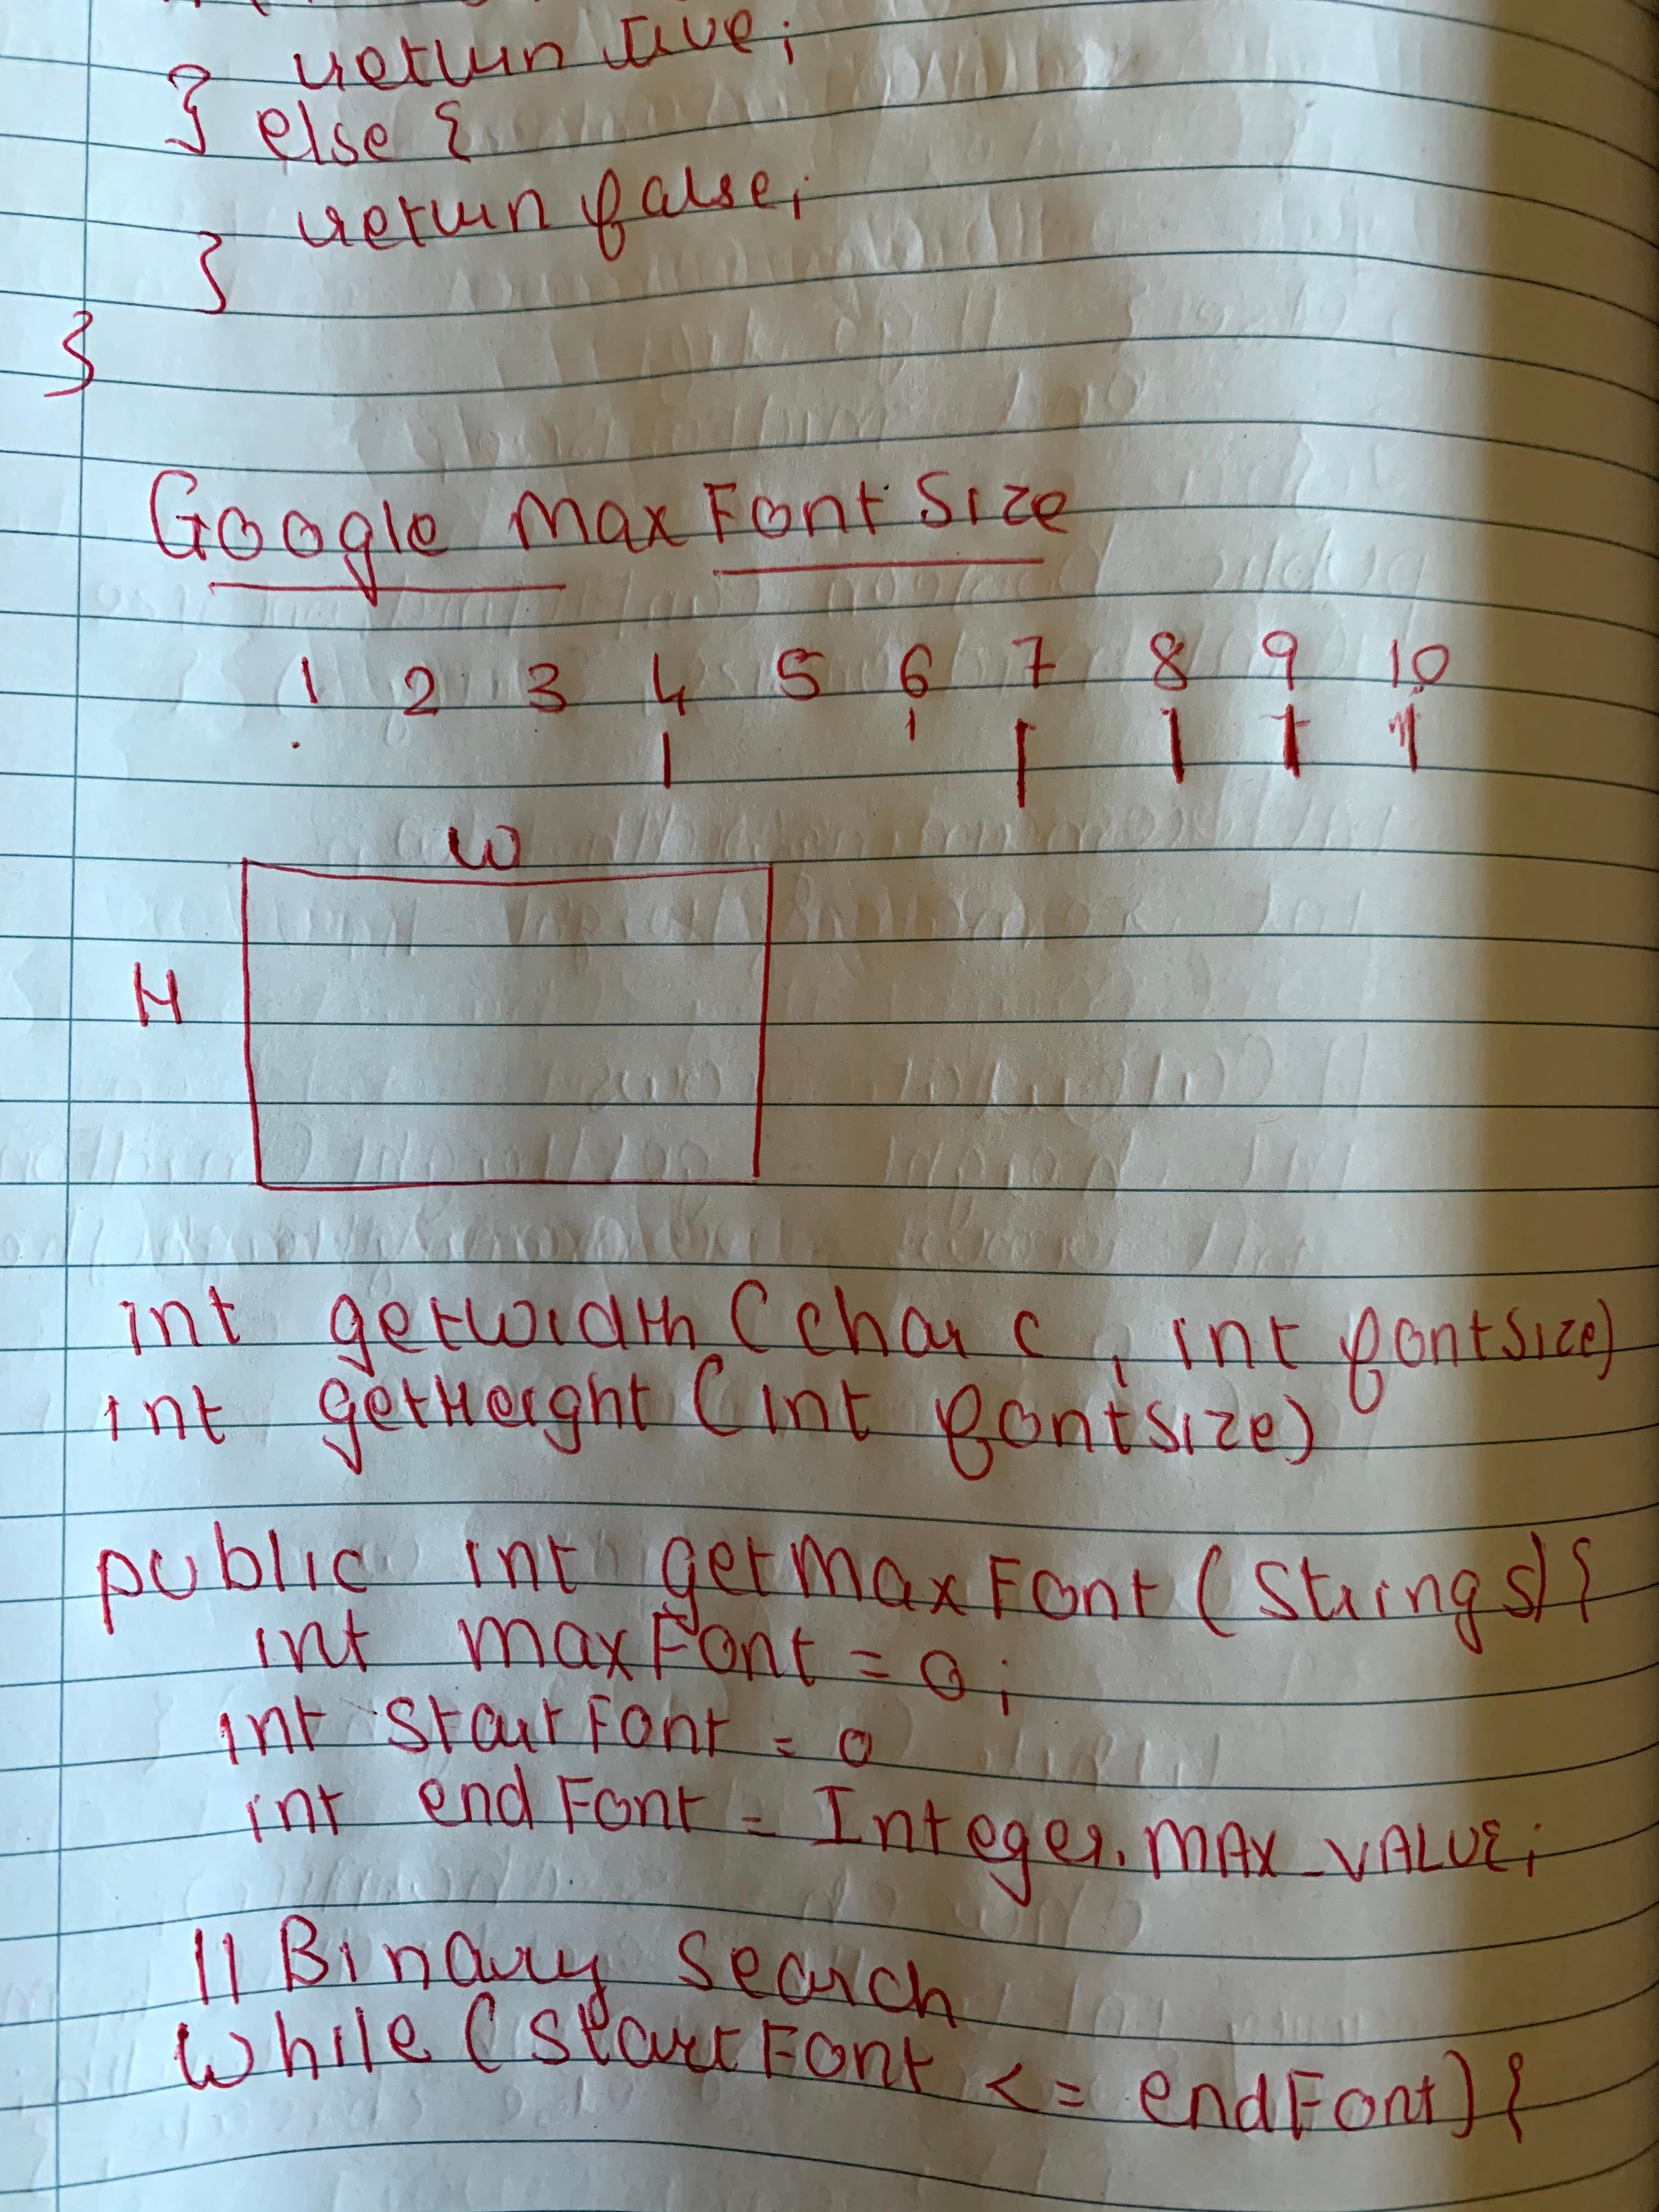 return true;
} else {
return false;
}
}
Google Max Font Size
1 2 3 4 5 6 7 8 9 10
W
H
int getWidth (char c, int fontSize)
int getHeight (int fontSize)
public int getMaxFont (String s) {
int maxFont = 0;
int startFont = 0
int endFont = Integer.MAX_VALUE;
// Binary Search
while (startFont <= endFont) {